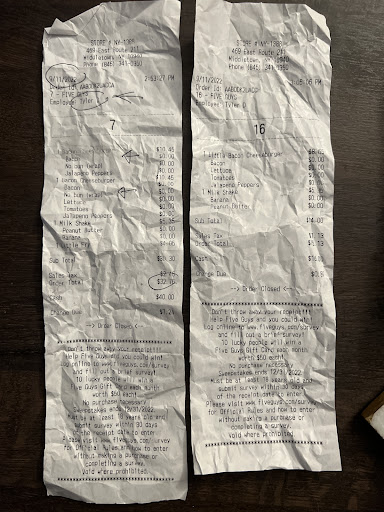 STORE # NY-1308
469 East Route 211
Middletown, NY 10940
Phone (845) 341-0350
9/11/2022 2:53:27 PM
Order Id:
7 - FIVE GUYS
Employee: Tyler
7
Bacon $0.00
No Bun (Bread) $0.00
Jalapeno Peppers $0.00
1 Bacon Cheeseburger $10.45
Bacon
No Bun (Bread) $0.00
Lettuce $0.00
Tomatoes $0.00
Jalapeno Peppers $0.00
1 Milk Shake
Peanut Butter $0.00
Banana $0.00
Fry
Sub Total
Sales Tax
Order Total
Cash $40.00
Change Due
--> Order Closed <--
Don't throw away your receipt!!!
Help Five Guys and you could win!
Log online to www.fiveguys.com/survey
and fill out a brief survey!
10 lucky people will win a
Five Guys Gift Card each month
worth $50 each!
No purchase necessary
Sweepstakes ends 12/31/2022
Must be at least 18 years old and
submit survey within 30 days
of the receipt date to enter.
Please visit www.fiveguys.com/survey
for Official Rules and how to enter
without making a purchase or
completing a survey.
Void where prohibited.
STORE # NY-1308
469 East Route 211
Middletown, NY 10940
Phone (845) 341-0350
9/11/2022 PM
Order Id:
16 - FIVE GUYS
Employee: Tyler
16
1 Little Bacon Cheeseburger
Bacon $0.00
Lettuce $0.00
Tomatoes $0.00
Jalapeno Peppers $0.00
1 Milk Shake
Banana $0.00
Peanut Butter $0.00
Sub Total
Sales Tax
Order Total
Cash
Change Due
--> Order Closed <--
Don't throw away your receipt!!!
Help Five Guys and you could win!
Log online to www.fiveguys.com/survey
and fill out a brief survey!
10 lucky people will win a
Five Guys Gift Card each month
worth $50 each!
No purchase necessary
Sweepstakes ends 12/31/2022
Must be at least 18 years old and
submit survey within 30 days
of the receipt date to enter.
Please visit www.fiveguys.com/survey
for Official Rules and how to enter
without making a purchase or
completing a survey.
Void where prohibited.